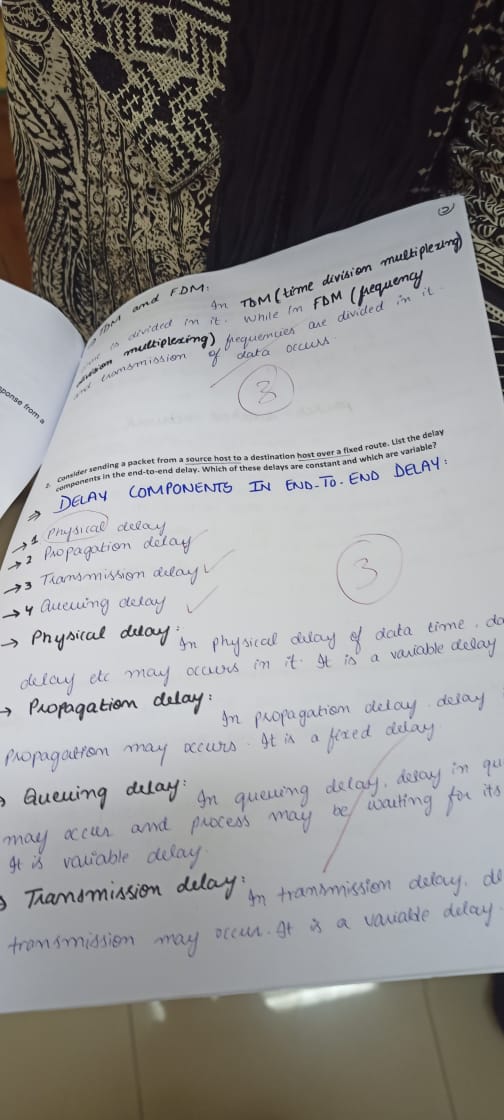 (2)
TDM and FDM:
In TDM (time division multiplexing)
is divided in it. While in FDM (frequency
division multiplexing) frequencies are divided in it
and transmission of data occurs
3
ponse from a
2. Consider sending a packet from a source host to a destination host over a fixed route. List the delay
components in the end-to-end delay. Which of these delays are constant and which are variable?
⇒ DELAY COMPONENTS IN END-TO-END DELAY:
→ 1 Physical delay
→ 2 Propagation delay
→ 3 Transmission delay ✓
→ 4 Queuing delay ✓
3
→ Physical delay:
In physical delay of data time, da
delay etc may occurs in it. It is a variable delay
→ Propagation delay:
In propagation delay, delay
Propagation may occurs. It is a fixed delay.
Queuing delay:
In queuing delay, delay in qu
may occur and process may be waiting for its
It is variable delay.
Transmission delay:
In transmission delay, de
transmission may occur. It is a variable delay.